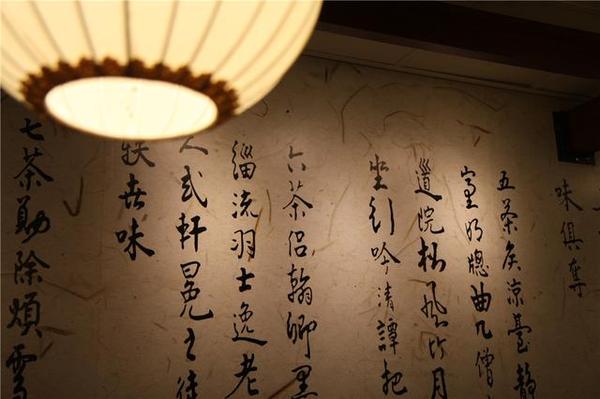 味俱奪
五茶矦涼臺靜
室明牕曲几僧
道院松風竹月
坐行吟清譚把
六茶侶翰卿墨
緇流羽士逸老
人或軒冕之徒
軼世味
七茶勛除煩雪